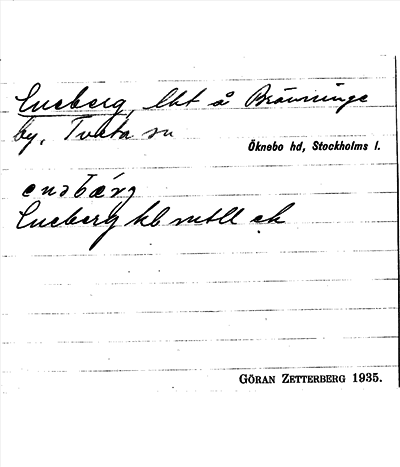 Eneberg, lht å Brävninge
by, Tveta sn
Öknebo hd, Stockholms l.
enəbærj
Eneberg hb mtll ek
GÖRAN ZETTERBERG 1935.